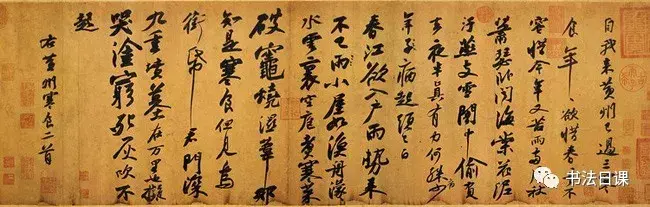 自我來黃州已過三寒
食年〃欲惜春〃去不
容惜今年又苦雨兩月秋
蕭瑟臥聞海棠花泥
汙燕支雪闇中偷負
去夜半真有力何殊少
年子病起頭已白
春江欲入戶雨勢來
不已雨小屋如漁舟濛〃
水雲裏空庖煮寒菜
破竈燒濕葦那
知是寒食但見烏
銜帋君門深
九重墳墓在万里也擬
哭塗窮死灰吹不
起
右黃州寒食二首
书法日课